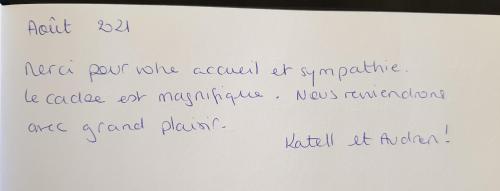 Août 2021
Merci pour votre accueil et sympathie.
Le cadre est magnifique. Nous reviendrons
avec grand plaisir.
Katell et Audren !